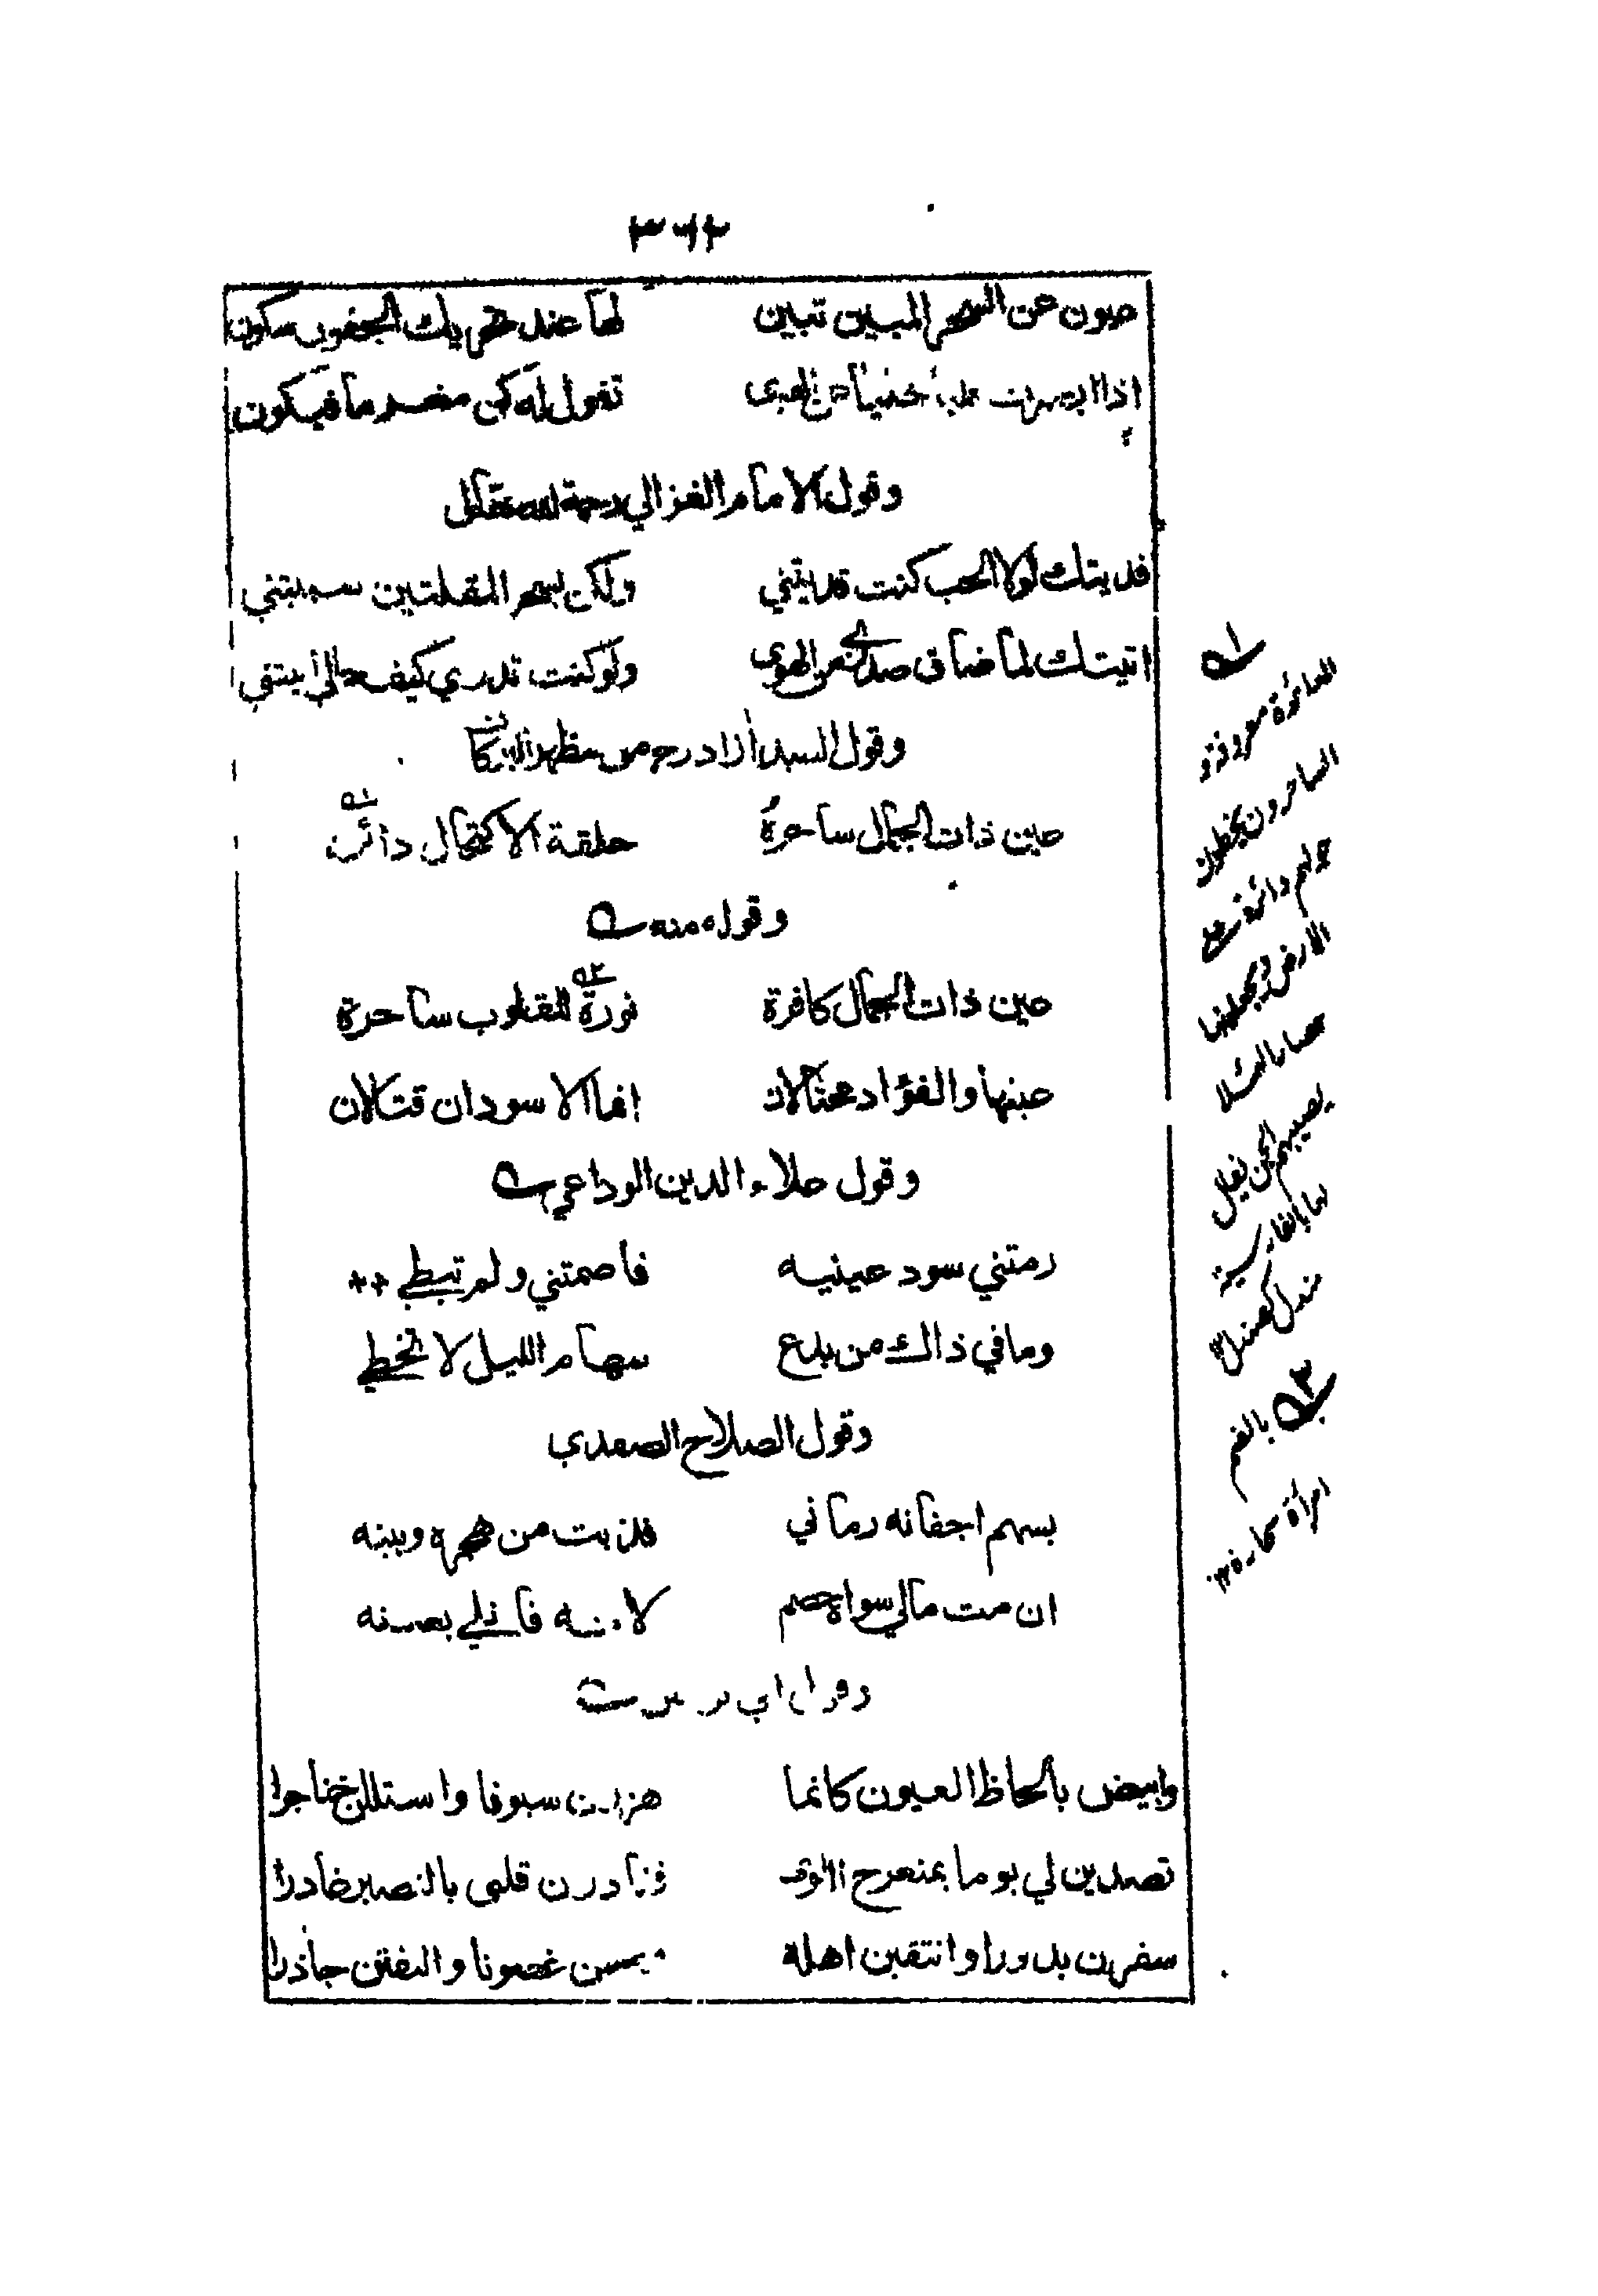 ٣٦٢
عيون عن السحر المبين تبين لها عند تحريك الجفون سكون
اذا ابصرت قلبا خليا من الهوى تقول له كن مغرما فيكون
وقول الامام الغزالي رحمة الله تعالى
فديتك لولا الحب كنت فديتني ولكن بسحر المقلتين سبيتني
اتيتك لما ضاق صدري من الهوى ولو كنت تدري كيف حالي أتيتني
وقول السيد آزاد رح من مظهر البركات
عين ذات الجمال ساحرة حلقة الاكتحال دائرة
وقوله منه
عين ذات الجمال كافرة نورة للقلوب ساحرة
عينها والفؤاد محتالان انما الاسودان قتالان
وقول علاء الدين الوداعي
رمتني سود عينيه فاصمتني ولم تبطي
وما في ذاك من بدع سهام الليل لا تخطي
وقول الصلاح الصفدي
بسهم اجفانه رماني فذبت من هجره وبينه
ان مت مالي سواه خصم لانه قاتلي بعينه
وقول ابي
وابيض بالحاظ العيون كانما هززن سيوفا واستللن خناجرا
تصدين لي يوما بمنعرج اللوى فغادرن قلبي بالتصبر غادرا
سفرن بدورا وانتقبن اهلة ومسن غصونا والتفتن جاذرا
الدائرة معروفة و
الساحرون يخطون
حولهم دائرة على
الارض ويجعلونها
حصارا لئلا
يصيبهم الجن يقال
لها بالفارسية
مندل كصندل
٢ بالضم
امرأة سحارة